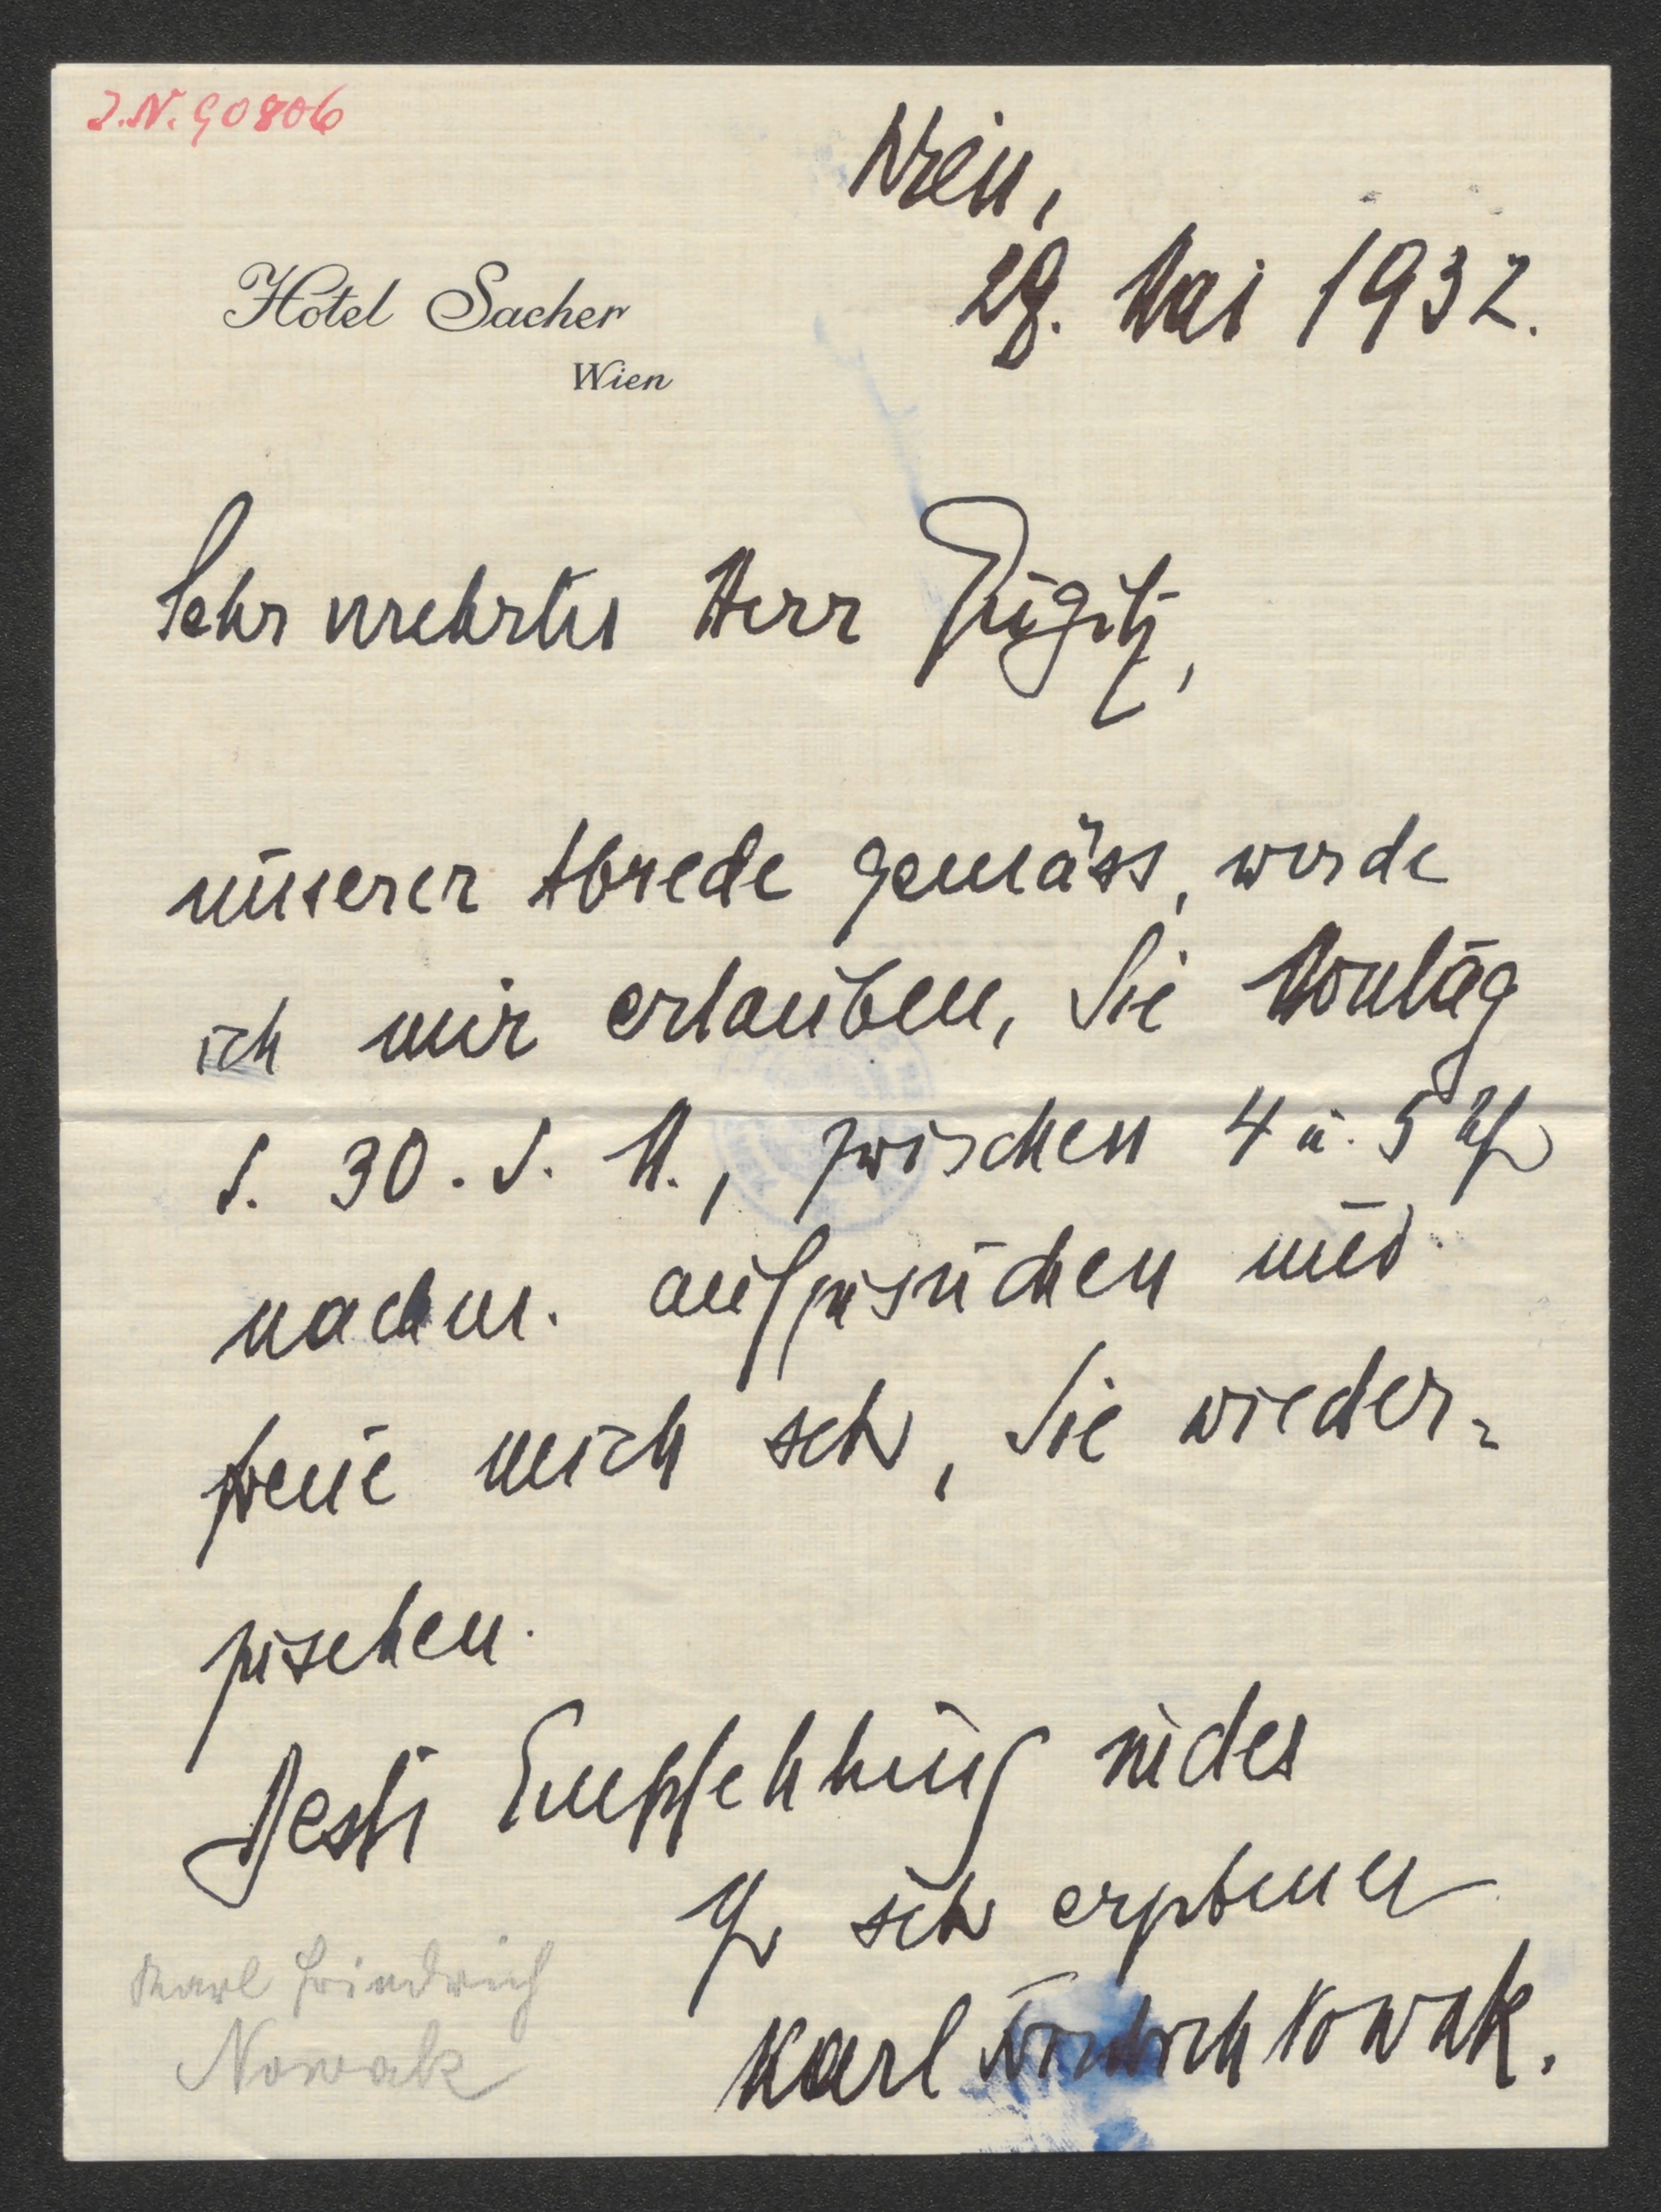 J.N. 90806
Wien,
28. Mai 1932.
Hotel Sacher
Wien
Sehr verehrter Herr Gugitz,
unserer Abrede gemäss, werde
ich mir erlauben, Sie Montag
d. 30. d. M., zwischen 4 u. 5 Uhr
nachm. aufzusuchen und
freue mich sehr, Sie wieder-
zusehen.
Beste Empfehlung indes
Ihr sehr ergebener
Karl Friedrich Nowak.
Karl Friedrich
Nowak